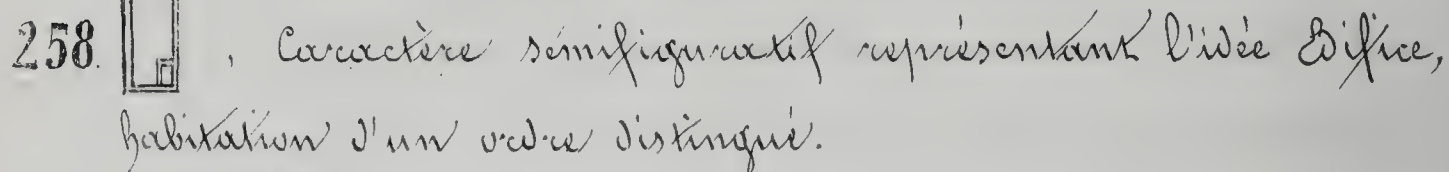 258. 𓉗, Caractère sémifiguratif représentant l'idée Edifice,
habitation d'un ordre distingué.